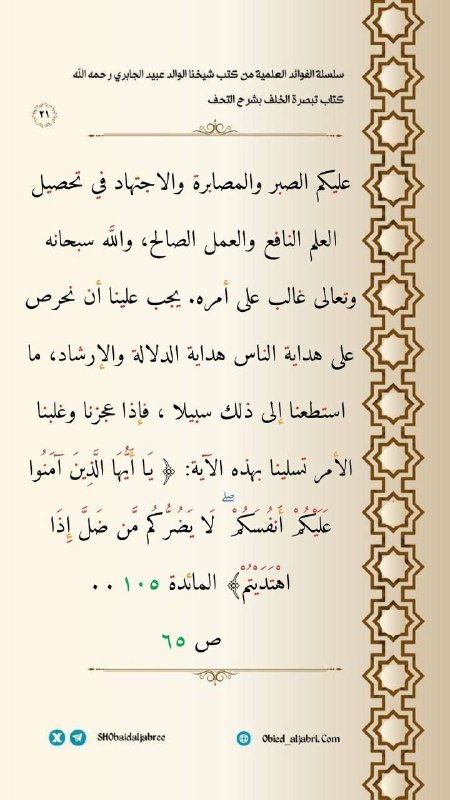 سلسلة الفوائد العلمية من كتب شيخنا الوالد عبيد الجابري رحمه الله
كتاب تبصرة الخلف بشرح التحف
٢١
عليكم الصبر والمصابرة والاجتهاد في تحصيل
العلم النافع والعمل الصالح، والله سبحانه
وتعالى غالب على أمره. يجب علينا أن نحرص
على هداية الناس هداية الدلالة والإرشاد، ما
استطعنا إلى ذلك سبيلا ، فإذا عجزنا وغلبنا
الأمر تسلينا بهذه الآية: ﴿ يَا أَيُّهَا الَّذِينَ آمَنُوا
عَلَيْكُمْ أَنفُسَكُمْ ۖ لَا يَضُرُّكُم مَّن ضَلَّ إِذَا
اهْتَدَيْتُمْ﴾ المائدة ١٠٥ ..
ص ٦٥
SHObaidaljabree
Obied_aljabri.Com